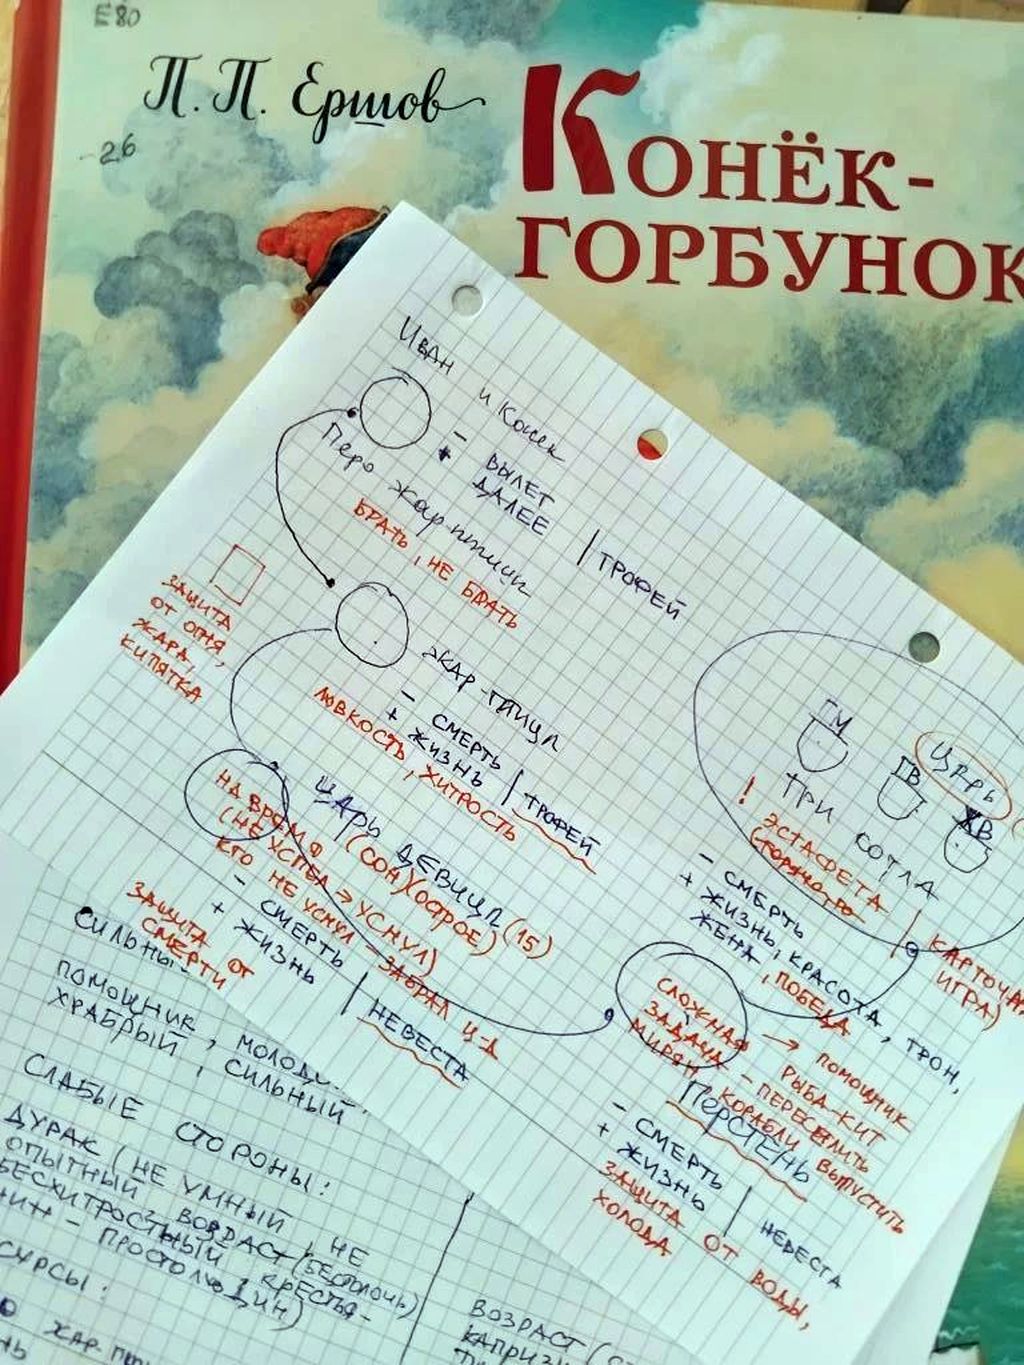 Е80
П.П. Ершов
-26
КОНЁК-
ГОРБУНОК
Иван и Конек
- ВЫЛЕТ
+ ДАЛЕЕ | ТРОФЕЙ
Перо жар-птицы
БРАТЬ, НЕ БРАТЬ
ЗАЩИТА
ОТ ОГНЯ,
ЖАРА,
КИПЯТКА
ЖАР-ПТИЦА
- СМЕРТЬ
+ ЖИЗНЬ | ТРОФЕЙ
ЛОВКОСТЬ, ХИТРОСТЬ
ЦАРЬ ДЕВИЦА (15)
(СОН)(ОСТРОЕ)
НА ВРЕМЯ
(НЕ УСПЕЛ → УСНУЛ)
КТО НЕ УСНУЛ - ЗАБРАЛ Ц-Д
- СМЕРТЬ
+ ЖИЗНЬ | НЕВЕСТА
ЗАЩИТА ОТ
СМЕРТИ
ГМ
ГВ
ХВ
ЦАРЬ
ТРИ КОТЛА
! ЭСТАФЕТА
- СМЕРТЬ
+ ЖИЗНЬ, КРАСОТА, ТРОН,
ЖЕНА, ПОБЕДА
КАРТОЧНАЯ
ИГРА)
СЛОЖНАЯ → ПОМОЩНИК
ЗАДАЧА РЫБА-КИТ
- ПЕРЕСЕЛИТЬ
МИРЯН, КОРАБЛИ ВЫПУСТИТЬ
ПЕРСТЕНЬ
- СМЕРТЬ
+ ЖИЗНЬ | НЕВЕСТА
ЗАЩИТА ОТ ВОДЫ,
ХОЛОДА
ПОМОЩНИК, МОЛОД
ХРАБРЫЙ, СИЛЬНЫЙ
СЛАБЫЕ СТОРОНЫ:
ДУРАК (НЕ УМНЫЙ, НЕ
ОПЫТНЫЙ, ВОЗРАСТ (БЕСТОЛОЧЬ)
БЕСХИТРОСТНЫЙ, КРЕСТЬЯ-
НИН - ПРОСТОЛЮДИН)
СУРСЫ:
ЖАР-ПТИ
ВОЗРАСТ (
КАПРИЗ